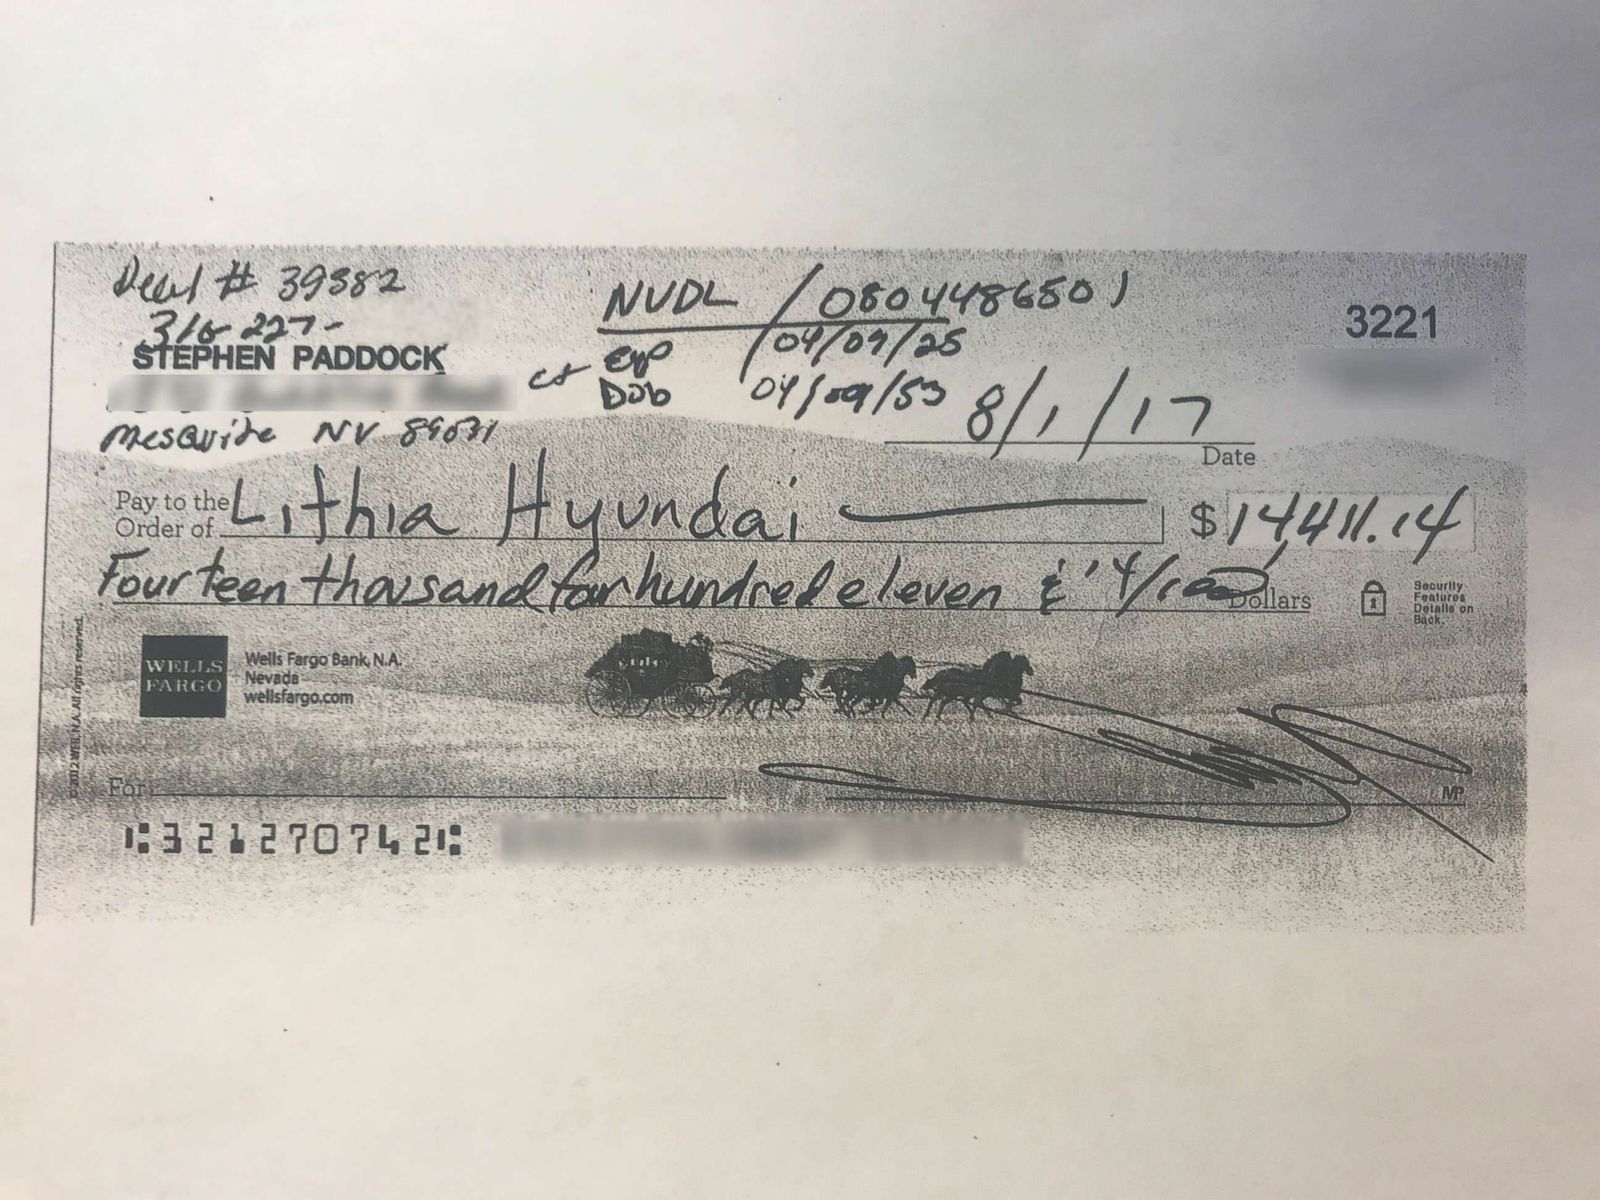 Deal # 39382
NVDL / 0804486501
3221
316-227-
STEPHEN PADDOCK
exp 04/09/25
Dob 04/09/53
8/1/17
Mesquite NV
Date
Pay to the Order of Lithia Hyundai $ 14,411.14
Fourteen thousand four hundred eleven & 14/100 Dollars
Security
Features
Details on
Back.
WELLS
FARGO
Wells Fargo Bank, N.A.
Nevada
wellsfargo.com
For
MP
⑆321270742⑆